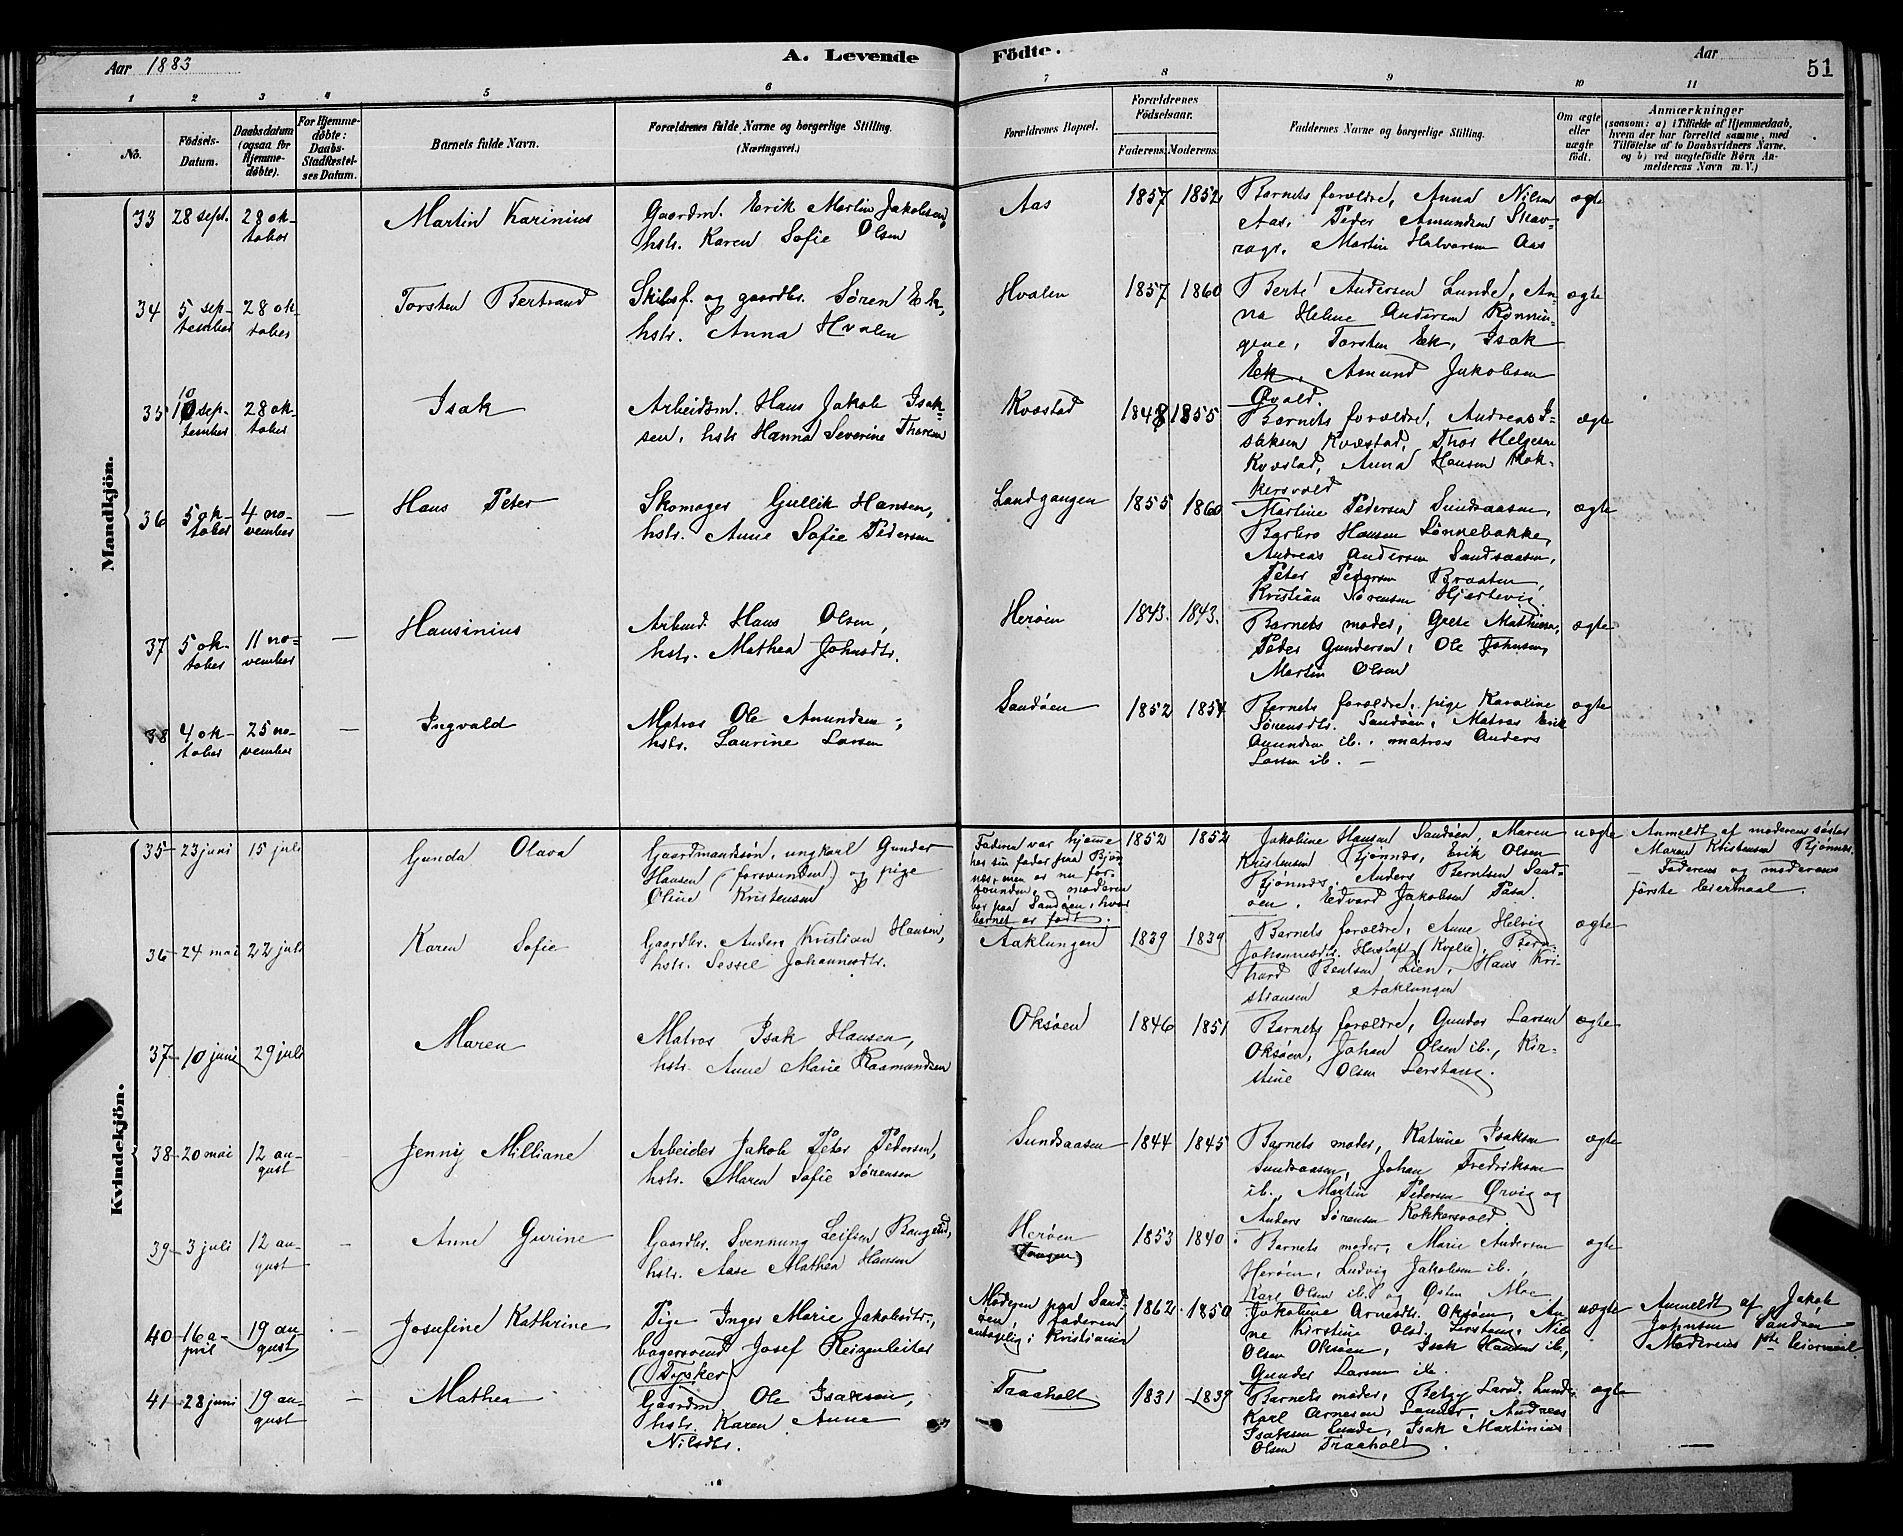 Aar 1883
A. Levende Födte.
Aar
51
1 2 3 4 5 6 7 8 9 10 11
No.
Födsels-Datum.
Daabsdatum (ogsaa for Hjemme-döbte).
For Hjemme-døbte: Daabs-Stadfæstel-ses Datum.
Barnets fulde Navn.
Forældrenes fulde Navne og borgerlige Stilling.
(Næringsvei.)
Forældrenes Bopæl.
Forældrenes Födselsaar.
Faderens. Moderens.
Faddernes Navne og borgerlige Stilling.
Om ægte eller uægte født.
Anmærkninger
(saasom: a) i Tilfælde af Hjemmedaab, hvem der har forrettet samme, med Tilföielse af to Daabsvidners Navne, og b) ved uægtefødte Børn An-melderens Navn m. V.)
Mandkjön.
33 28 sept. 28 ok-tober Martin Karinius
Gaardm. Erik Martin Jakobsen,
hstr. Karen Sofie Olsen
Aas 1857 1852
Barnets forældre, Anna Nilsen
Aas, Peder Amundsen Skav-
rager, Martin Halvorsen Aas
ægte
34 5 sep-tember 28 ok-tober Torsten Bertrand
Skibsf. og gaardbr. Søren Ek,
hstr. Anna Hvalen
Hvalen 1857 1860
Berte Andersen Lunde, An-
na Helene Andersen Rønnin-
gene, Torsten Ek, Isak
Ek, Amund Jakobsen
Øvald.
ægte
35 10 sep-tember 28 ok-tober Isak
Arbeidsm. Hans Jakob Isak-
sen, hstr Hanna Severine Thorsen
Kvæstad 1848 1855
Barnets forældre, Andreas I-
saksen Kvæstad, Thor Helgesen
Kvæstad, Anna Hansen Kok-
kersvold
ægte
36 5 ok-tober 4 no-vember — Hans Peter
Skomager Gullik Hansen,
hstr. Anne Sofie Pedersen
Landgangen 1855 1860
Martine Pedersen Sundsaasen,
Barbro Hansen Lønnebakke,
Andreas Andersen Sandsaasen,
Peter Pedersen Braaten,
Kristian Sørensen Hjertevig.
ægte
37 5 ok-tober 11 no-vember — Hansinius
Arbeid. Hans Olsen,
hstr. Mathea Johnsdtr.
Herøen 1843. 1843.
Barnets moder, Grete Mathisen,
Peder Gundersen, Ole Johnsen,
Martin Olsen
ægte
38 4 ok-tober 25 no-vember — Ingvald
Matros Ole Amundsen,
hstr. Laurine Larsen
Sandøen 1852 1854
Barnets forældre, pige Karoline
Sørensdtr. Sandøen, Matros Erik
Amundsen ib., matros Anders
Larsen ib. —
ægte
Kvindekjön.
35 23 juni 15 juli Gunda Olava
Gaardmandssøn, ungkarl Gunder
Hansen (forsvunden) og pige
Oline Kristensen
Faderen var hjemme
hos sin fader paa Bjøn
næs, men er nu for-
svunden, moderen
bor paa Sandøen, hvor
barnet er født.
1852 1852
Jakobine Hansen Sandøen, Maren
Kristensen Bjønnæs, Erik Olsen
Bjønnes, Anders Berntsen Sand-
øen, Edvard Jakobsen Pasa.
uægte
Anmeldt af moderens søster
Maren Kristensen Bjønnæs.
— Faderens og moderens
første leiermaal.
36 24 mai 22 juli Karen Sofie
Gaardbr. Anders Kristian Hansen,
hstr. Sessel Johannesdtr.
Aaklungen 1839 1839
Barnets forældre, Anne Helvig
Johannesdtr. Herstaft (Kvelle), Bern-
hard Bentsen Lien, Hans Kri-
stiansen Aaklungen
ægte
37 10 juni 29 juli Maren
Matros Isak Hansen,
hstr. Anne Marie Raamundsen
Oksøen 1846 1851
Barnets forældre, Gunder Larsen
Oksøen, Johan Olsen ib., Kir-
stine Olsen Lerstang.
ægte
38 20 mai 12 au-gust Jenny Milliane
Arbeider Jakob Peter Pedersen,
hstr. Maren Sofie Sørensen
Sundsaasen 1844 1845
Barnets moder, Katrine Isaksen
Sundsaasen, Johan Fredriksen
ib., Martin Pedersen Ørvig og
Anders Sørensen Kokkersvold
ægte
39 3 juli 12 au-gust — Anne Gurine
Gaardbr. Svennung Leifsen
hstr. Aase Mathea Hansen
Herøen
(Tangen)
1853 1840
Barnets moder, Marie Andersen
Herøen, Ludvig Jakobsen ib.,
Karl Olsen ib. og Østen Moe
ægte
40 16 a-pril 19 au-gust — Josefine Kathrine
Pige Inger Marie Jakobsdtr.,
bagersvend Josef Reigenleiter
(Tysker)
Moderen paa Sand-
øen, faderen
antagelig i Kristiania
1862 1850
Jakobine Arnesdtr. Oksøen, An-
ne Kirstine Olsd. Lerstang, Nils
Olsen Oksøen, Isak Hansen ib,
Gunder Larsen ib.
uægte
Anmeldt af Jakob
Johnsen Sandøen
Moderens 1ste leiermaal
41 28 juni 19 au-gust — Mathea
Gaardm. Ole Isaksen,
hstr. Karen Anne
Nilsdtr.
Traaholt 1831 1839
Barnets moder, Betzy Larsd. Lunde
Karl Arnesen Lander, Andreas
Isaksen Lunde, Isak Martinius
Olsen Traaholt.
ægte